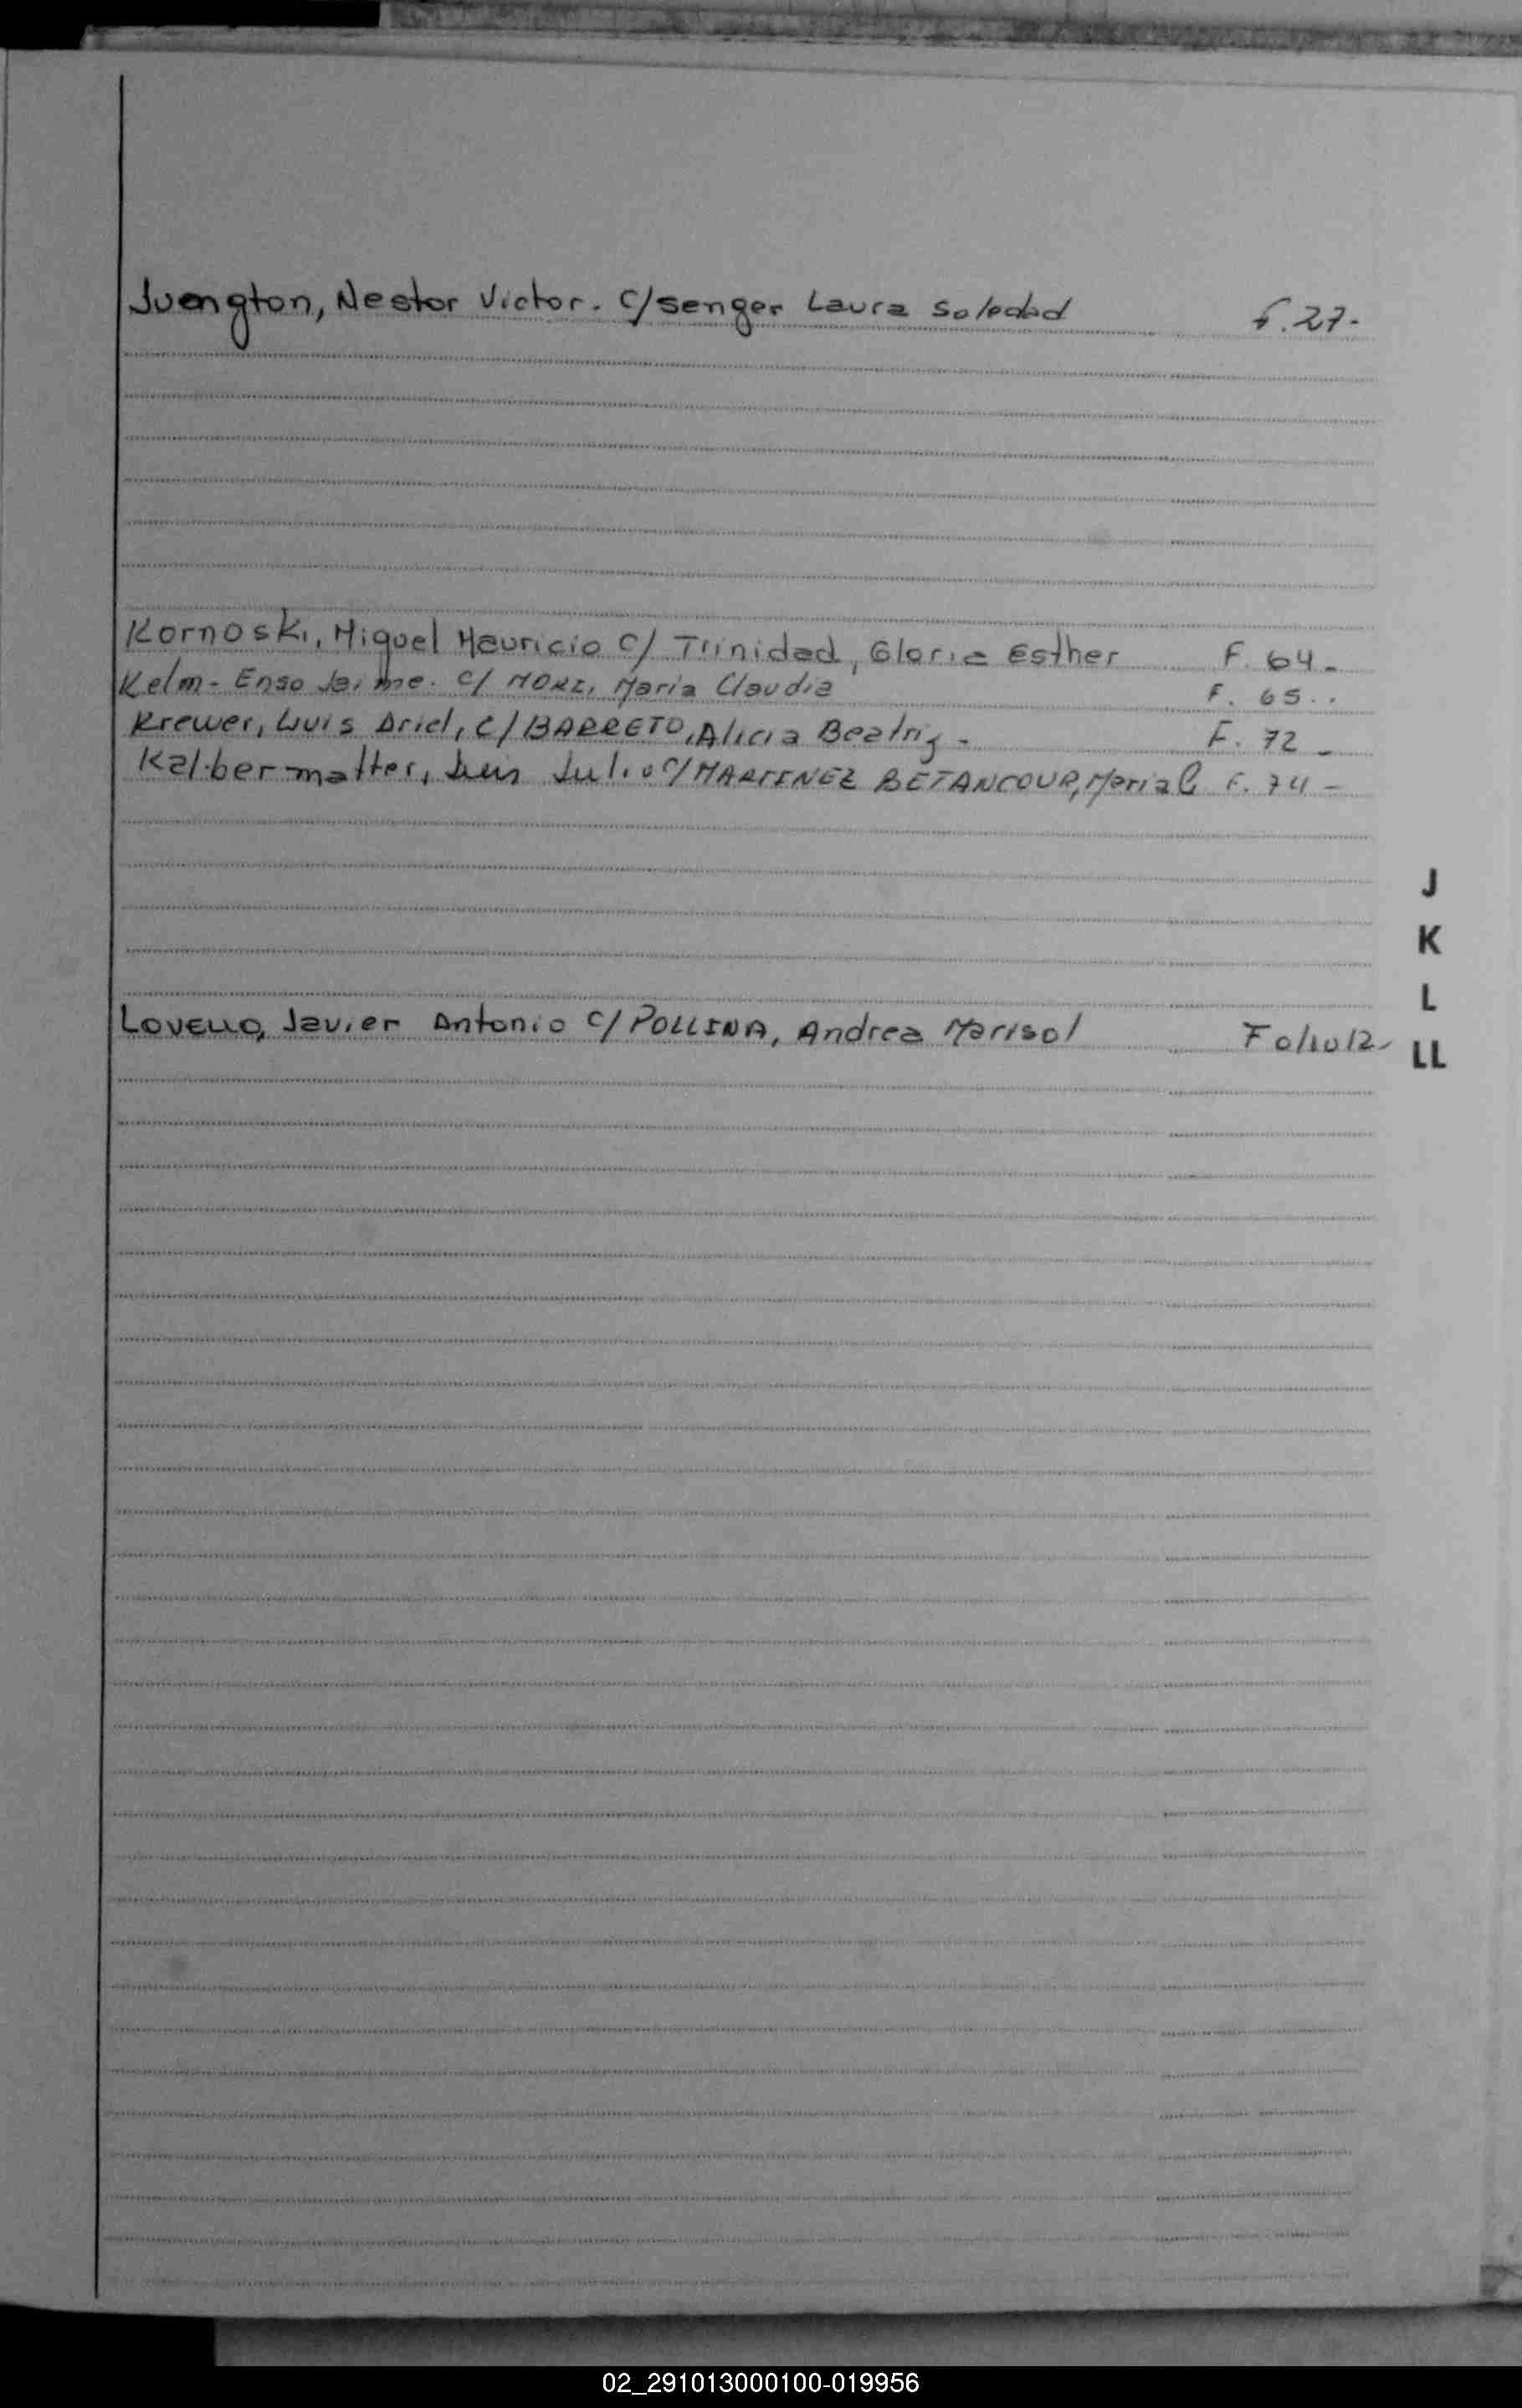 Juengton, Nestor Victor. C/Senger Laura Soledad F. 27-
Kornoski, Miguel Mauricio C/ Trinidad, Gloria Esther F. 64-
Kelm- Enso Jaime. C/ MORI, Maria Claudia F. 65..
Krewer, Luis Ariel, C/BARRETO, Alicia Beatriz - F. 72-
Kalbermatter, Luis Julio C/MARTINEZ BETANCOUR, Maria F. 74-
J
K
L
LOVELLO, Javier Antonio C/POLLINA, Andrea Marisol Folio 12-
LL
02_291013000100-019956